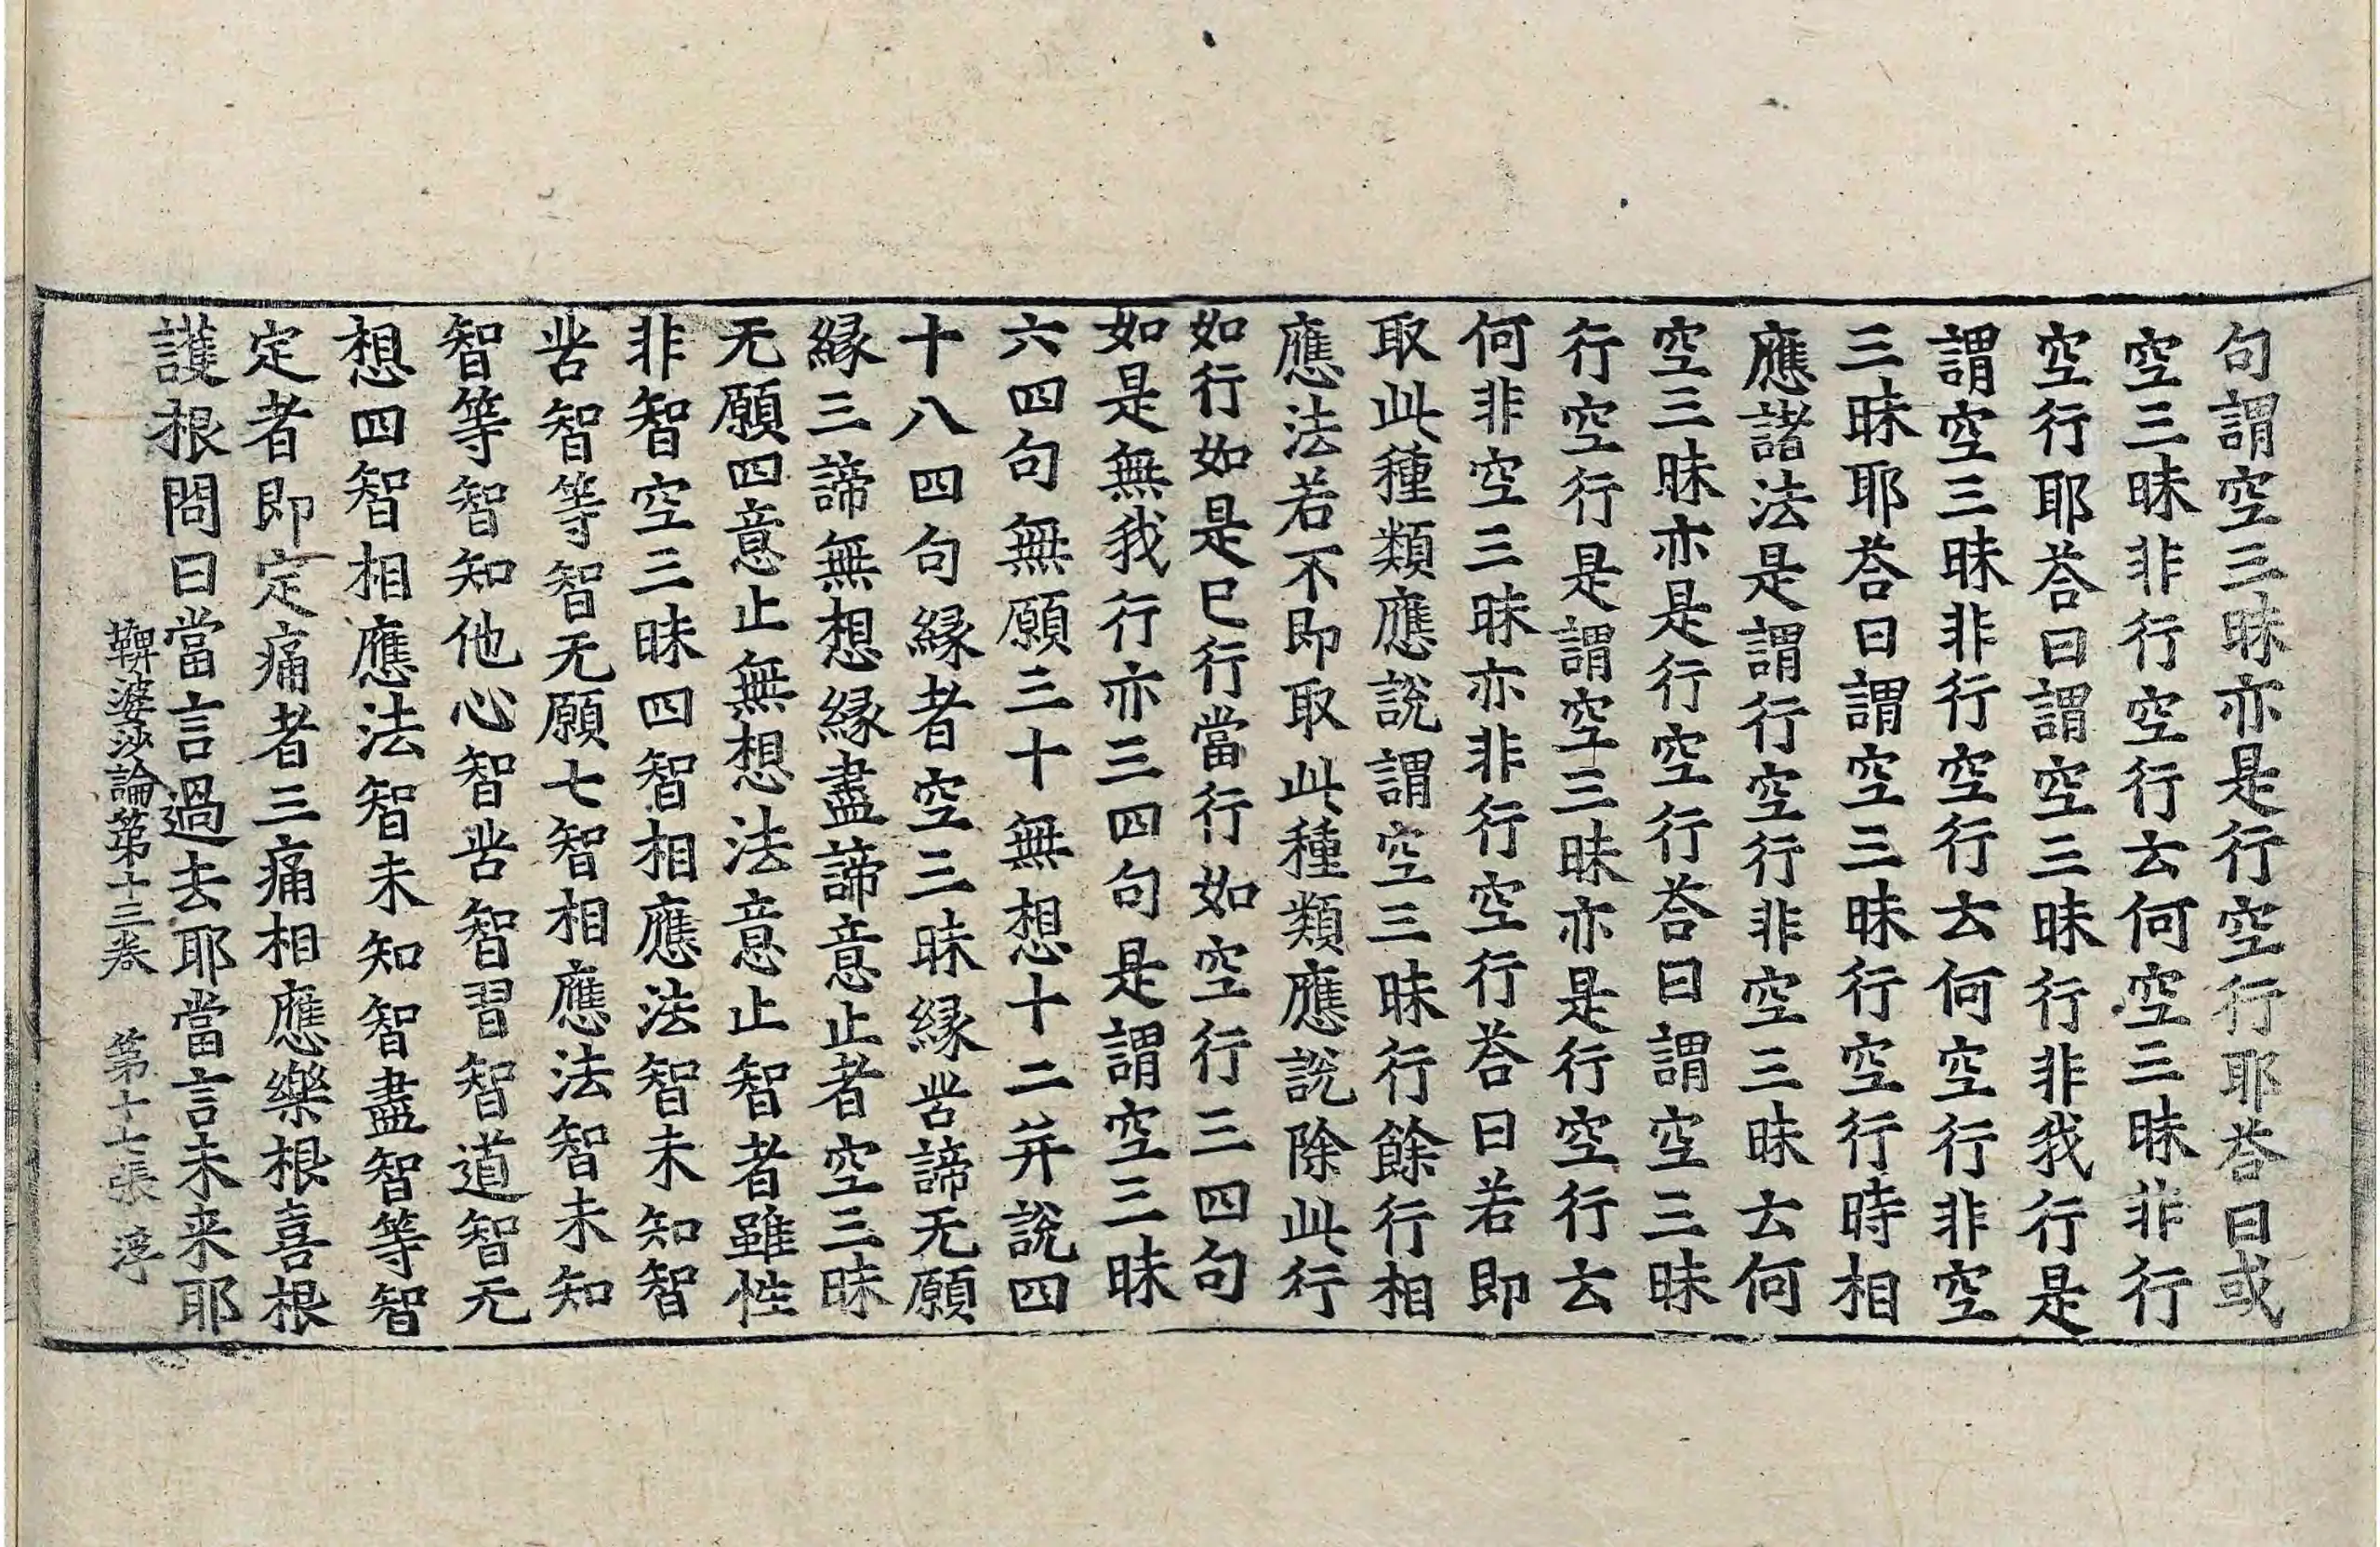 句謂空三昧亦是行空行耶荅曰或
空三昧非行空行云何空三昧非行
空行耶荅曰謂空三昧行非我行是
謂空三昧非行空行云何空行非空
三昧耶荅曰謂空三昧行空行時相
應諸法是謂行空行非空三昧云何
空三昧亦是行空行荅曰謂空三昧
行空行是謂空三昧亦是行空行云
何非空三昧亦非行空行荅曰若即
取此種類應說謂空三昧行餘行相
應法若不即取此種類應說除此行
如行如是已行當行如空行三四句
如是無我行亦三四句是謂空三昧
六四句無願三十無想十二并說四
十八四句縁者空三昧縁苦諦无願
縁三諦無想縁盡諦意止者空三昧
无願四意止無想法意止智者雖性
非智空三昧四智相應法智未知智
苦智等智无願七智相應法智未知
智等智知他心智苦智習智道智无
想四智相應法智未知智盡智等智
定者即定痛者三痛相應樂根喜根
護根問曰當言過去耶當言未来耶
鞞婆沙論第十三卷 第十七張 浮